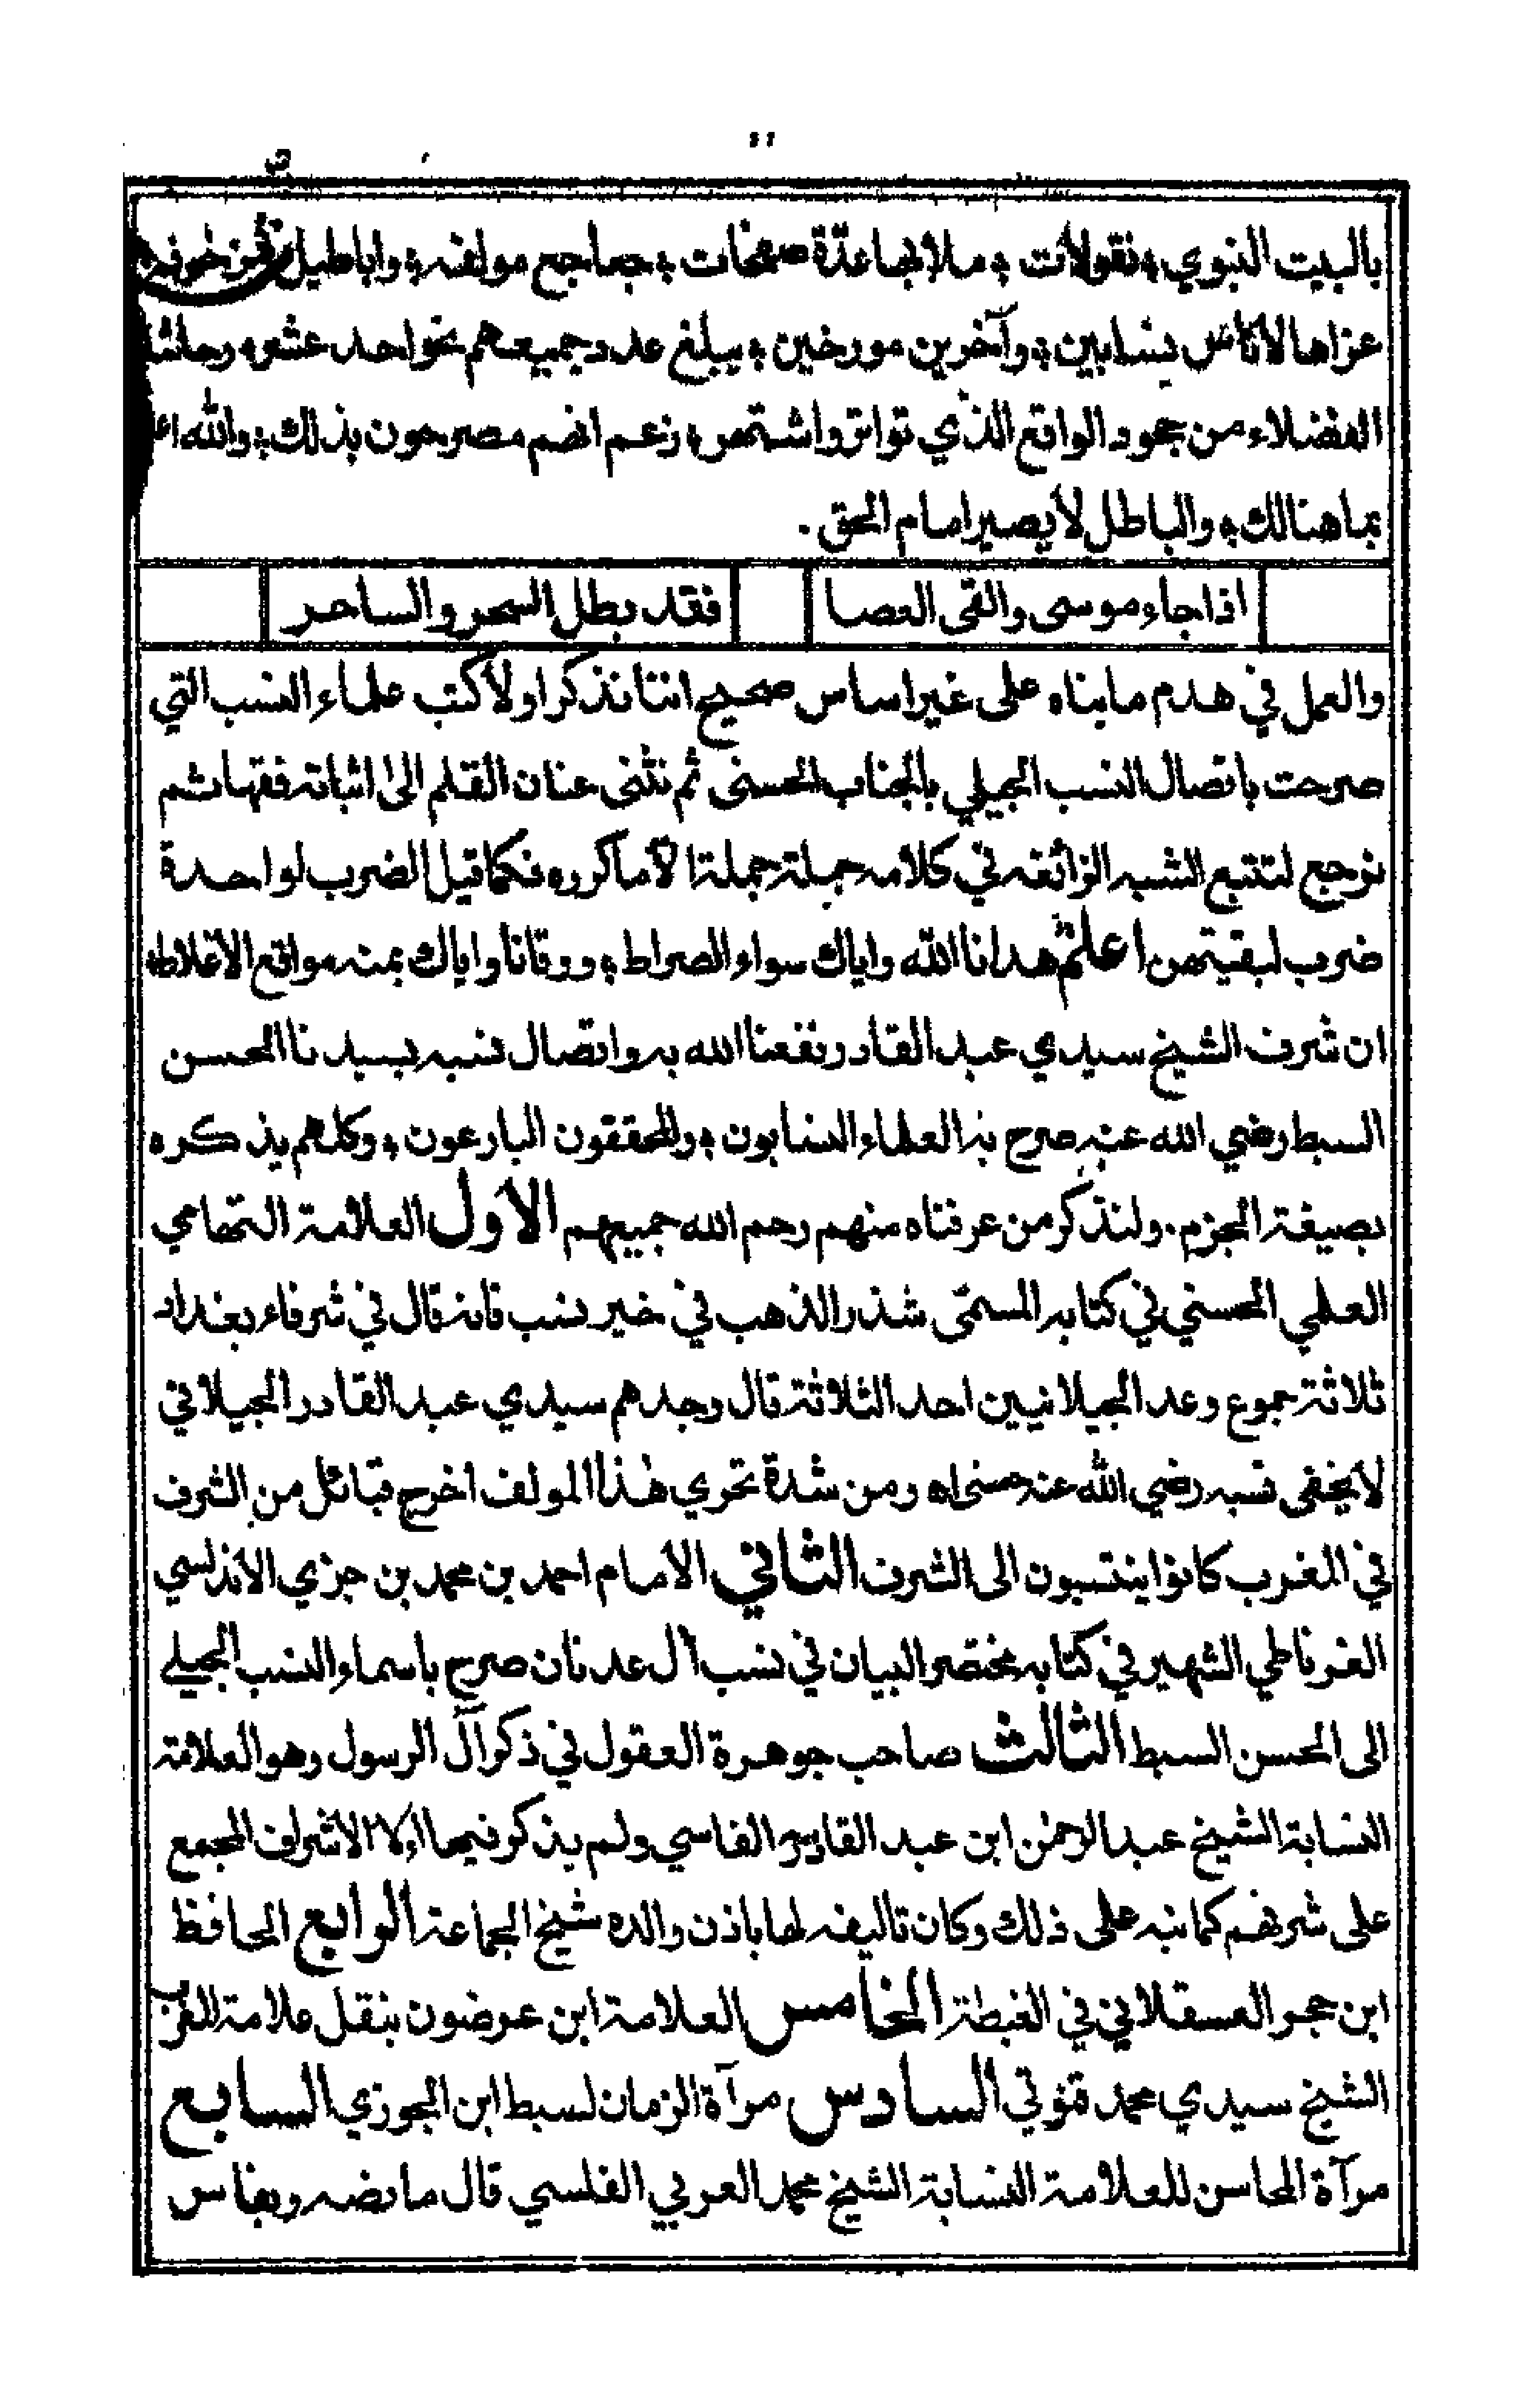 بالبيت النبوي ۞ نقولات ۞ ملأ بها عدة صفحات ۞ جمعا جمع مولفه ۞ واباطيل
عزاها لاناس نسابين ۞ وآخرين مورخين ۞ يبلغ عدد جميعهم نحو احد عشر رجلا
الفضلاء من جحود الواقع الذي تواتر واشتهر ۞ زعم انهم مصرحون بذلك ۞ والله
بما هنالك ۞ والباطل لا يصير امام الحق .
اذا جاء موسى والقى العصا فقد بطل السحر والساحر
والعمل في هدم ما بناه على غير اساس صحيح اننا نذكر اولا كتب علماء النسب التي
صرحت باتصال النسب الجيلي بالجناب الحسنى ثم نثنى عنان القلم الى اثباته فقها ثم
نرجع لتتبع الشبه الزائغه في كلامه جملة جملة الا ما كرره فكما قيل الضرب لواحدة
ضرب لبقيتهن اعلم هدانا الله واياك سواء الصراط ۞ ووقانا واياك بمنه مواقع الاغلاط ۞
ان شرف الشيخ سيدي عبد القادر نفعنا الله به واتصال نسبه بسيدنا الحسن
السبط رضي الله عنه صرح به العلماء النسابون ۞ والمحققون البارعون ۞ وكلهم يذكره
بصيغة الجزم . ولنذكر من عرفناه منهم رحم الله جميعهم الاول العلامة التهامي
العلمي الحسني في كتابه المسمى شذر الذهب في خير نسب فانه قال في شرفاء بغداد
ثلاثة جموع وعد الجيلانيين احد الثلاثة قال وجدهم سيدي عبد القادر الجيلاني
لا يخفى نسبه رضي الله عنه حسنى اه ومن شدة تحري هذا المولف اخرج قبائل من الشرف
في المغرب كانوا ينتسبون الى الشرف الثاني الامام احمد بن محمد بن جزي الاندلسي
الغرناطي الشهير في كتابه مختصر البيان في نسب آل عدنان صرح باسماء النسب الجيلي
الى الحسن السبط الثالث صاحب جوهرة العقول في ذكر آل الرسول وهو العلامة
النسابة الشيخ عبد الرحمن ابن عبد القادر الفاسي ولم يذكر فيها الا الاشراف المجمع
على شرفهم كما نبه على ذلك وكان تاليفه لها باذن والده شيخ الجماعة الرابع الحافظ
ابن حجر العسقلاني في الغبطة الخامس العلامة ابن عرضون بنقل علامة الغرب
الشيخ سيدي محمد السادس مرآة الزمان لسبط ابن الجوزي السابع
مرآة المحاسن للعلامة النسابة الشيخ محمد العربي الفاسي قال ما نصه وبفاس